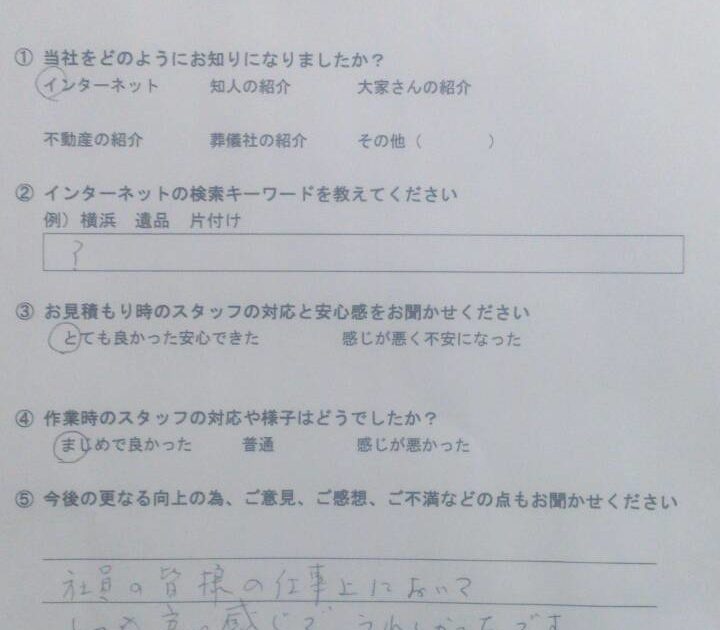 ① 当社をどのようにお知りになりましたか？
インターネット 知人の紹介 大家さんの紹介
不動産の紹介 葬儀社の紹介 その他（ ）
② インターネットの検索キーワードを教えてください
例）横浜 遺品 片付け
？
③ お見積もり時のスタッフの対応と安心感をお聞かせください
とても良かった安心できた 感じが悪く不安になった
④ 作業時のスタッフの対応や様子はどうでしたか？
まじめで良かった 普通 感じが悪かった
⑤ 今後の更なる向上の為、ご意見、ご感想、ご不満などの点もお聞かせください
社員の皆様の仕事上において
感じで うれしかったです